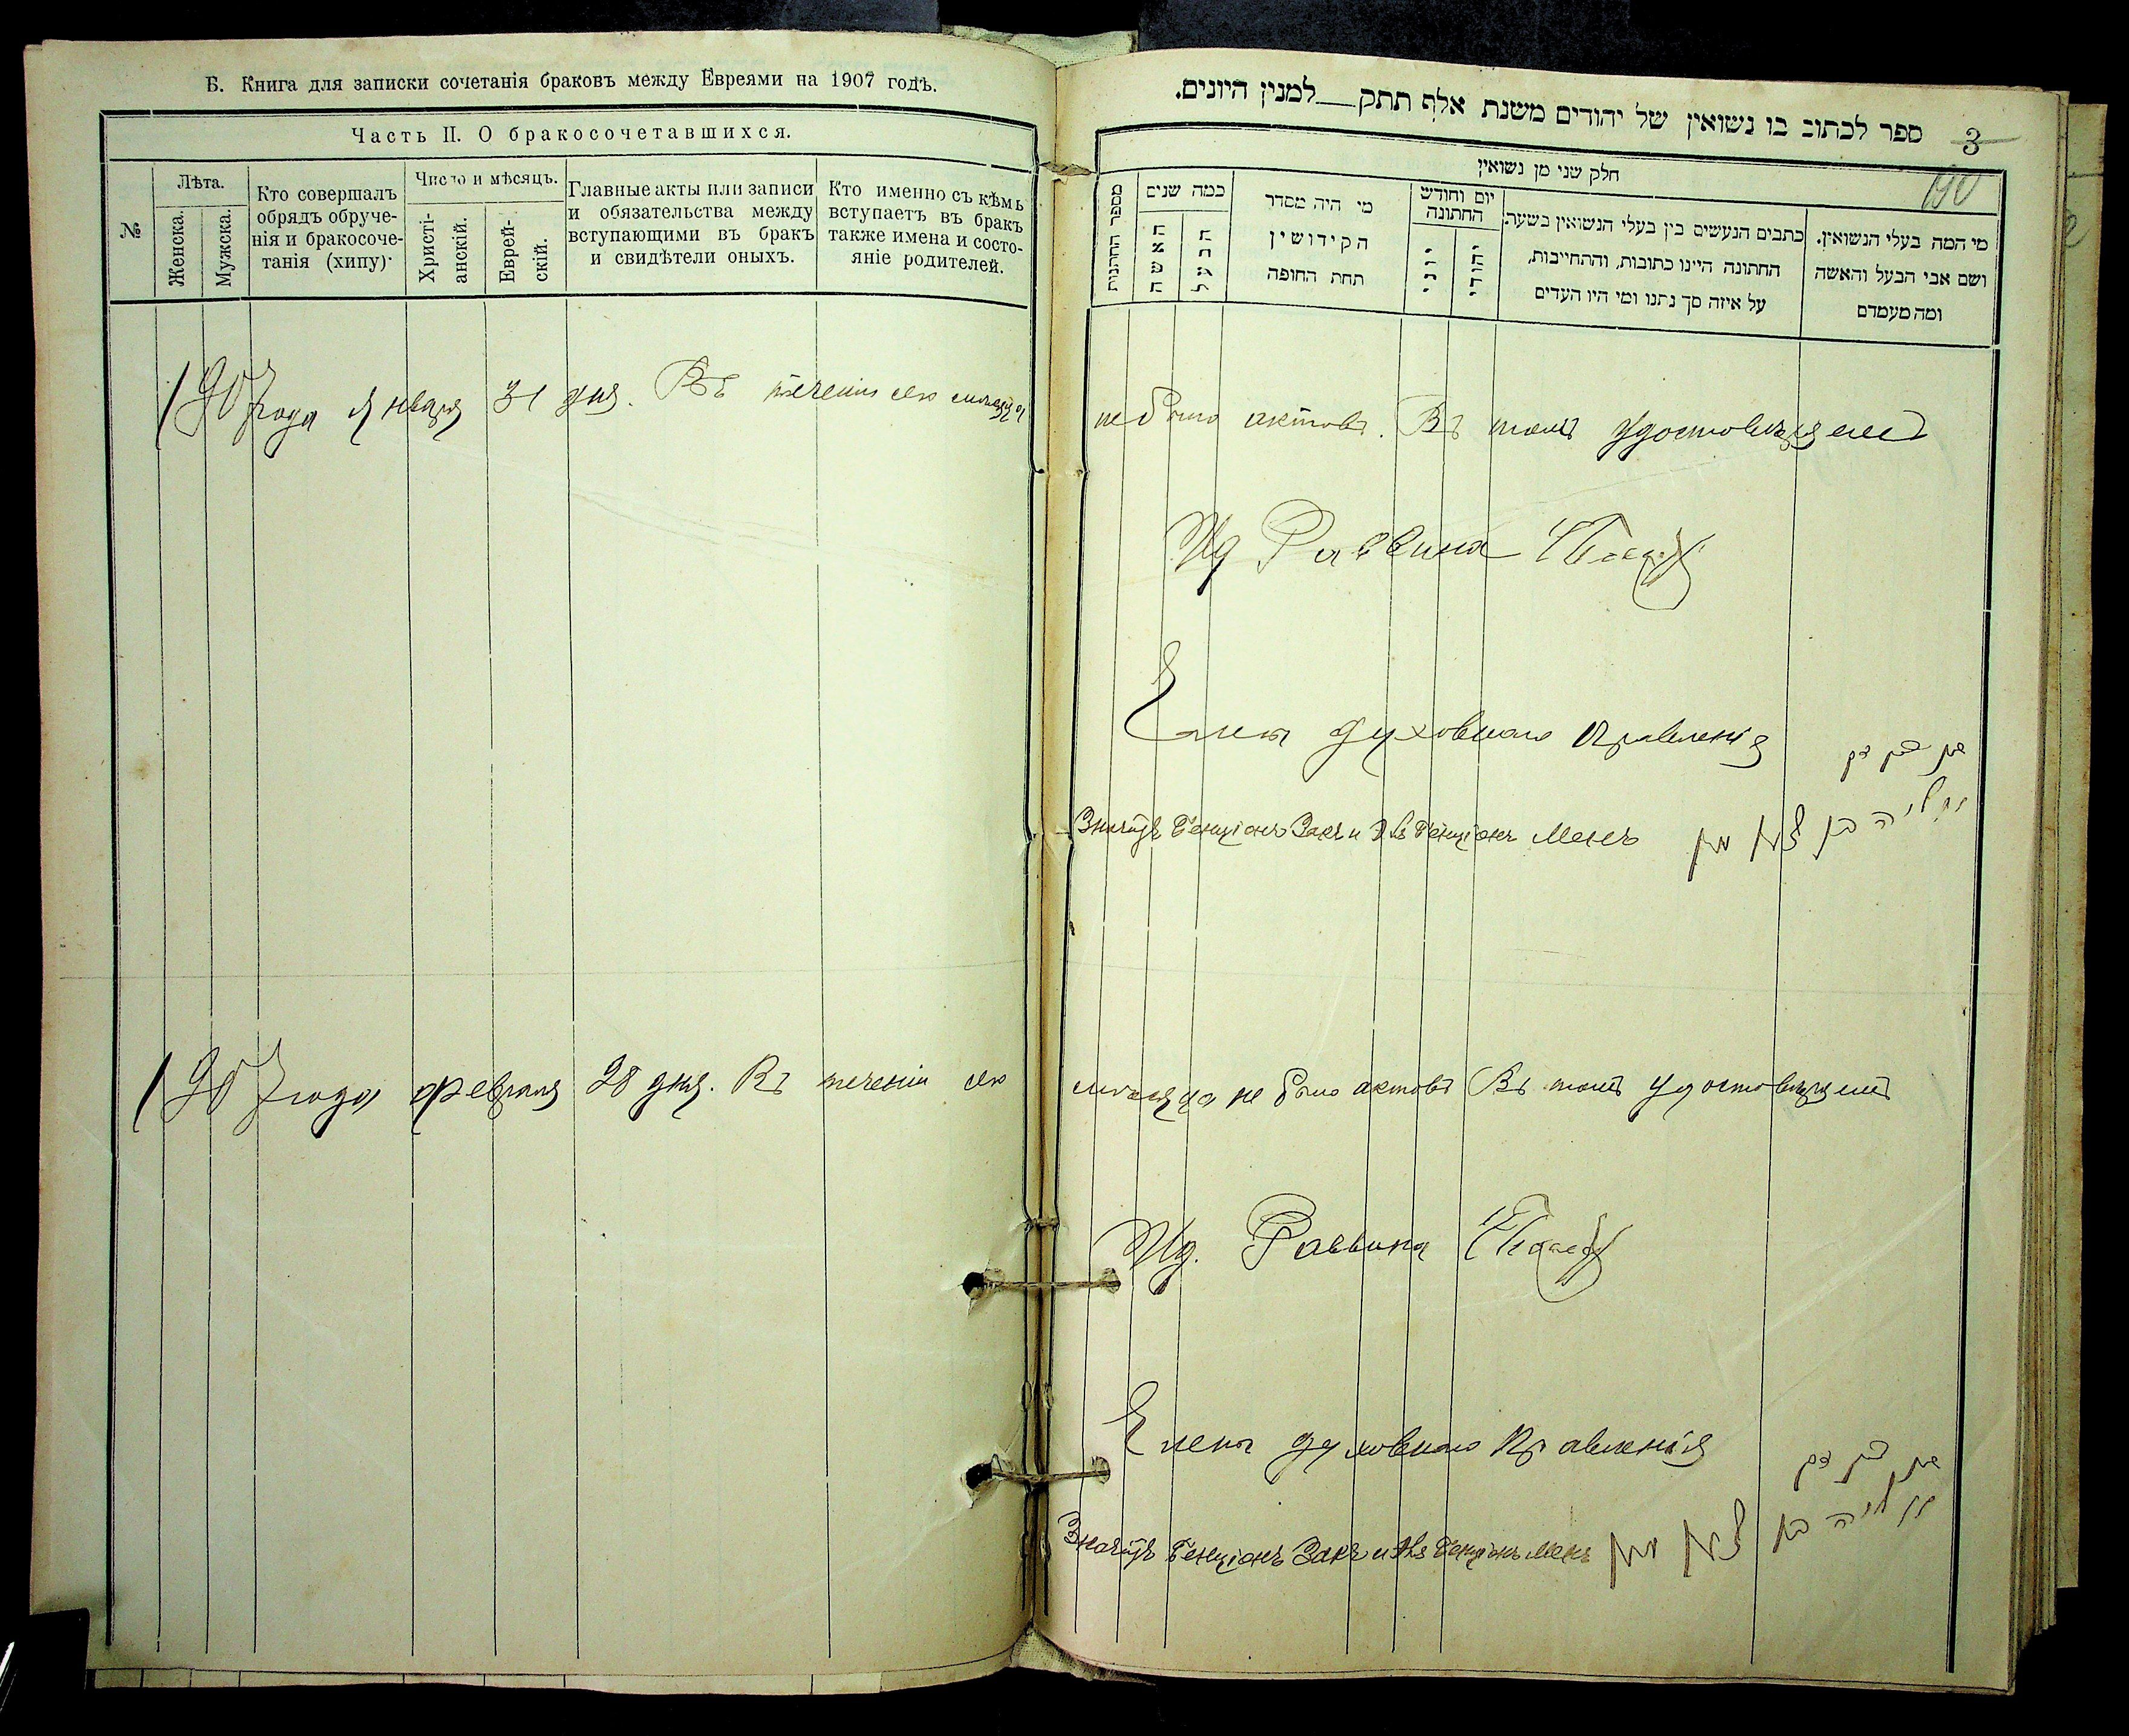 Б. Книга для записки сочетанія браковъ между Евреями на 1907 годъ.
Часть II. О бракосочетавшихся.
№
Лѣта.
Женска.
Мужска.
Кто совершалъ
обрядъ обруче-
нія и бракосоче-
танія (хипу).
Число и мѣсяцъ.
Христі-
анскій.
Еврей-
скій.
Главные акты или записи
и обязательства между
вступающими въ бракъ
и свидѣтели оныхъ.
Кто именно съ кѣмъ
вступаетъ въ бракъ
также имена и состо-
яніе родителей.
1907 года Января 31 дня. Въ теченіи сего мѣсяца
1907 года Февраля 28 дня. Въ теченіи сего
ספר לכתוב בו נשואין של יהודים משנת אלף תתק__למנין היונים.
3
190
חלק שני מן נשואין
מספר החתנות
כמה שנים
האשה
הבעל
מי היה מסדר
הקידושין
תחת החופה
יום וחודש
החתונה
יוני
יהודי
כתבים הנעשים בין בעלי הנשואין בשעת
החתונה היינו כתובות, והתחייבות,
על איזה סך נתנו ומי היו העדים
מי המה בעלי הנשואין.
ושם אבי הבעל והאשה
ומה מעמדם
не было актовъ. Въ томъ удостовѣряемъ
Ид Раввина
Члены духовнаго Правленія
Бенціонъ Закъ и Бенціонъ Менъ
мѣсяца не было актовъ Въ томъ удостовѣряемъ
Ид. Раввина
Члены духовнаго Правленія
Бенціонъ Закъ и Бенціонъ Менъ